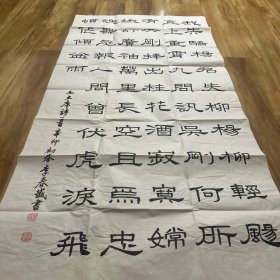 我失驕楊君失柳楊柳輕颺
直上重霄九問訊吳剛何所
有吳剛捧出桂花酒寂寞嫦
娥舒廣袖萬里長空且為忠
魂舞忽報人間曾伏虎淚飛
頓作傾盆雨
毛主席詩 辛卯初 李春 書